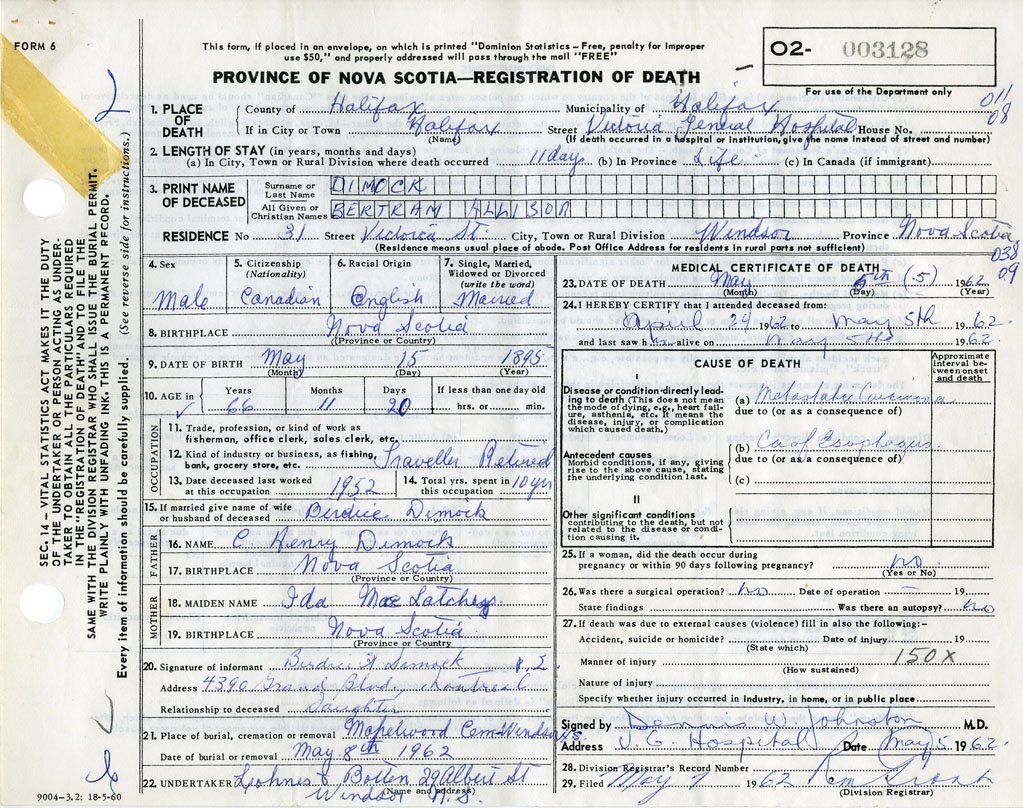 FORM 6
This form, if placed in an envelope, on which is printed "Dominion Statistics – Free, penalty for improper
use $50," and properly addressed will pass through the mail "FREE"
PROVINCE OF NOVA SCOTIA—REGISTRATION OF DEATH
O2- 003128
For use of the Department only
011
08
1. PLACE OF DEATH
County of Halifax Municipality of Halifax
If in City or Town Halifax Street Victoria General Hospital House No.
(Name) (If death occurred in a hospital or institution, give its name instead of street and number)
2. LENGTH OF STAY (in years, months and days)
(a) In City, Town or Rural Division where death occurred 11 days (b) In Province Life (c) In Canada (if immigrant)
3. PRINT NAME OF DECEASED
Surname or Last Name DIMOCK
All Given or Christian Names BERTRAM ALLISON
RESIDENCE No 31 Street Victoria St. City, Town or Rural Division Windsor Province Nova Scotia
(Residence means usual place of abode. Post Office Address for residents in rural parts not sufficient)
038
09
4. Sex Male
5. Citizenship (Nationality) Canadian
6. Racial Origin English
7. Single, Married, Widowed or Divorced (write the word) Married
8. BIRTHPLACE Nova Scotia
(Province or Country)
9. DATE OF BIRTH May 15 1895
(Month) (Day) (Year)
10. AGE in Years 66 Months 11 Days 20 If less than one day old hrs. or min.
OCCUPATION
11. Trade, profession, or kind of work as fisherman, office clerk, sales clerk, etc.
12. Kind of industry or business, as fishing, bank, grocery store, etc. Traveller Retired
13. Date deceased last worked at this occupation 1952
14. Total yrs. spent in this occupation 10 yrs
15. If married give name of wife or husband of deceased Birdie Dimock
FATHER
16. NAME C. Henry Dimock
17. BIRTHPLACE Nova Scotia
(Province or Country)
MOTHER
18. MAIDEN NAME Ida Mac Latchey
19. BIRTHPLACE Nova Scotia
(Province or Country)
20. Signature of informant Birdie Dimock
Address 4390 Grand Blvd, Montreal
Relationship to deceased Daughter
21. Place of burial, cremation or removal Mapelwood Cem Windsor N.S.
Date of burial or removal May 8th 1962
22. UNDERTAKER Botten 29 Albert St
(Name and address) Windsor N.S.
9004–3.2: 18-5-60
MEDICAL CERTIFICATE OF DEATH
23. DATE OF DEATH May 5th (5) 1962
(Month) (Day) (Year)
24. I HEREBY CERTIFY that I attended deceased from:
April 24 1962 to May 5th 1962
and last saw him alive on May 5th 1962
CAUSE OF DEATH
Approximate interval between onset and death
I
Disease or condition directly leading to death (This does not mean the mode of dying, e.g., heart failure, asthenia, etc. It means the disease, injury, or complication which caused death.)
(a) Metastatic Carcinoma
due to (or as a consequence of)
Antecedent causes
Morbid conditions, if any, giving rise to the above cause, stating the underlying condition last.
(b) Ca of Esophagus
due to (or as a consequence of)
(c)
II
Other significant conditions
contributing to the death, but not related to the disease or condition causing it.
25. If a woman, did the death occur during pregnancy or within 90 days following pregnancy? no
(Yes or No)
26. Was there a surgical operation? No Date of operation – 19
State findings Was there an autopsy? No
27. If death was due to external causes (violence) fill in also the following:–
Accident, suicide or homicide? Date of injury 19
(State which)
Manner of injury 150X
(How sustained)
Nature of injury
Specify whether injury occurred in industry, in home, or in public place
Signed by Dennis W Johnston M.D.
Address V. G. Hospital Date May 5 1962
28. Division Registrar's Record Number
29. Filed May 7 1962
(Division Registrar)
SEC. 14 – VITAL STATISTICS ACT MAKES IT THE DUTY
OF THE UNDERTAKER OR PERSON ACTING AS UNDER-
TAKER TO OBTAIN ALL THE PARTICULARS REQUIRED
IN THE "REGISTRATION OF DEATH" AND TO FILE THE
SAME WITH THE DIVISION REGISTRAR WHO SHALL ISSUE THE BURIAL PERMIT.
WRITE PLAINLY WITH UNFADING INK. THIS IS A PERMANENT RECORD.
Every item of information should be carefully supplied. (See reverse side for instructions.)